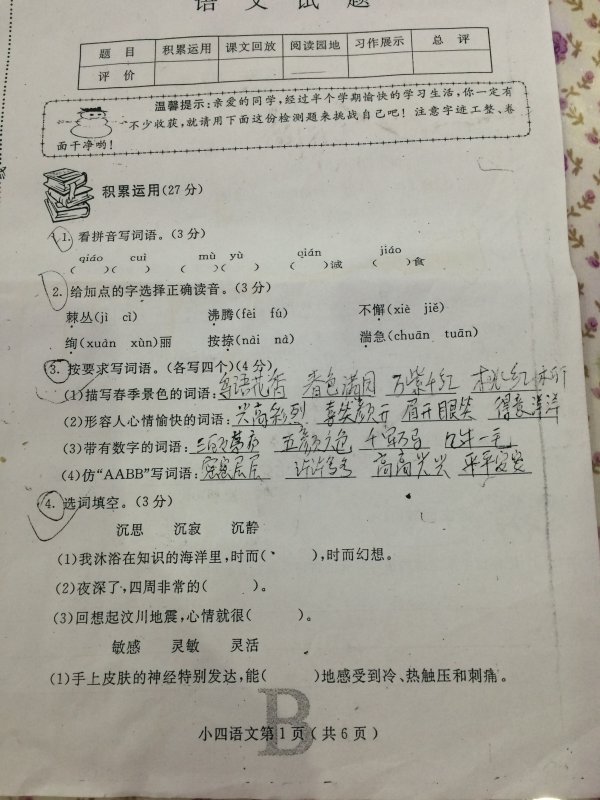 语文试题
题 目 积累运用 课文回放 阅读园地 习作展示 总 评
评 价
温馨提示:亲爱的同学,经过半个学期愉快的学习生活,你一定有
不少收获,就请用下面这份检测题来挑战自己吧! 注意字迹工整、卷
面干净哟!
线
积累运用(27分)
1. 看拼音写词语。(3分)
qiáo cuì mù yù qián jiáo
( )( ) ( )( ) ( )诚 ( )食
2. 给加点的字选择正确读音。(3分)
棘丛(jí cì) 沸腾(fèi fú) 不懈(xiè jiě)
绚(xuàn xùn)丽 按捺(nài nà) 湍急(chuān tuān)
3. 按要求写词语。(各写四个)(4分)
(1)描写春季景色的词语: 鸟语花香 春色满园 万紫千红 桃红
(2)形容人心情愉快的词语: 兴高彩烈 喜笑颜开 眉开眼笑 得意洋洋
(3)带有数字的词语: 五颜六色 千军万马 九牛一毛
(4)仿“AABB”写词语: 密密层层 许许多多 高高兴兴 平平安安
4. 选词填空。(3分)
沉思 沉寂 沉静
(1)我沐浴在知识的海洋里,时而( ),时而幻想。
(2)夜深了,四周非常的( )。
(3)回想起汶川地震,心情就很( )。
敏感 灵敏 灵活
(1)手上皮肤的神经特别发达,能( )地感受到冷、热触压和刺痛。
B
小四语文第1页(共6页)